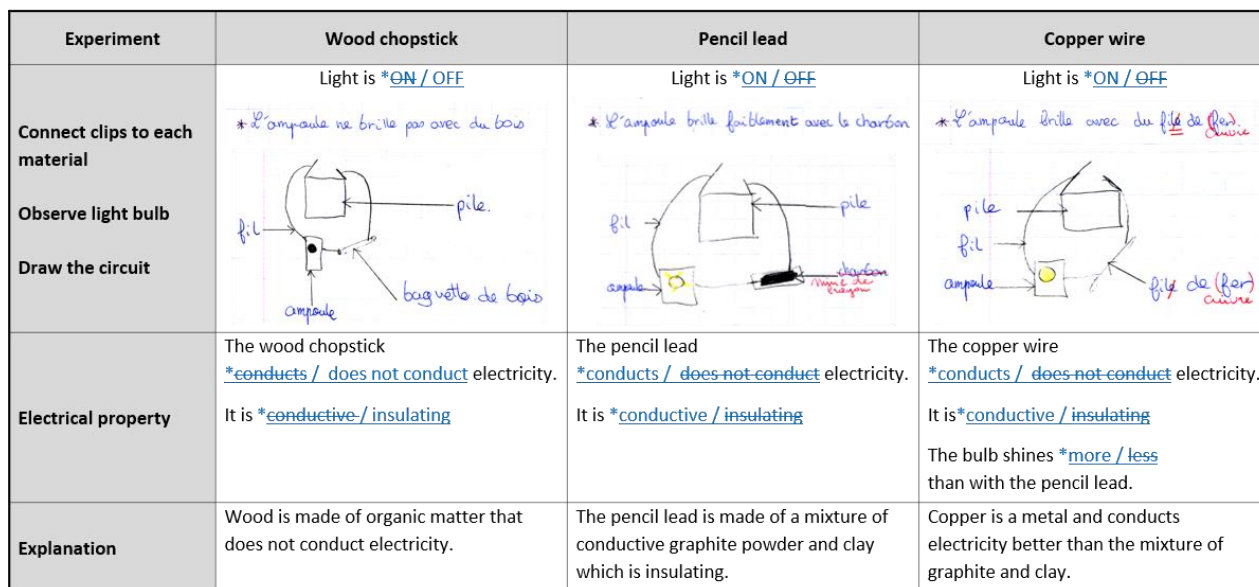 Experiment
Wood chopstick
Pencil lead
Copper wire
Connect clips to each
material
Observe light bulb
Draw the circuit
Light is *ON / OFF
* L'ampoule ne brille pas avec du bois
pile.
fil
baguette de bois
ampoule
Light is *ON / OFF
* L'ampoule brille faiblement avec le charbon
fil
pile
ampoule
charbon
mine de
crayon
Light is *ON / OFF
* L'ampoule brille avec du fil de (fer).
cuivre
pile
fil
ampoule
fil de (fer)
cuivre
Electrical property
The wood chopstick
*conducts / does not conduct electricity.
It is *conductive / insulating
The pencil lead
*conducts / does not conduct electricity.
It is *conductive / insulating
The copper wire
*conducts / does not conduct electricity.
It is*conductive / insulating
The bulb shines *more / less
than with the pencil lead.
Explanation
Wood is made of organic matter that
does not conduct electricity.
The pencil lead is made of a mixture of
conductive graphite powder and clay
which is insulating.
Copper is a metal and conducts
electricity better than the mixture of
graphite and clay.